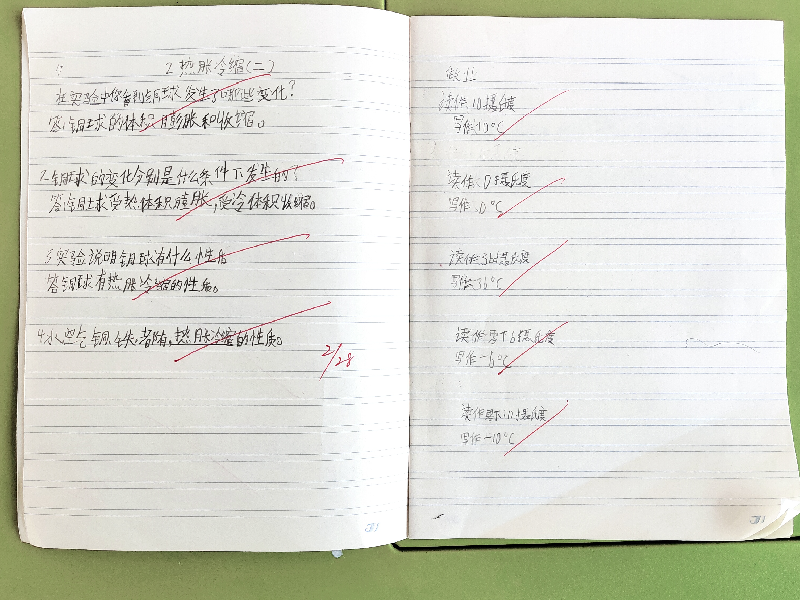 2 热胀冷缩(二)
在实验中你看到铜球发生了哪些变化?
答:铜球的体积膨胀和收缩。
2、铜球的变化分别是什么条件下发生的?
答:铜球受热体积膨胀,受冷体积收缩。
3实验说明铜球有什么性质
答铜球有热胀冷缩的性质。
4水空气铜铁,都有,热胀冷缩的性质。
2/28
做业
读作:10摄氏度
写作:10℃
读作:0摄氏度
写作:0℃
读作:36摄氏度
写作:36℃
读作零下6摄氏度
写作-6℃
读作零下10摄氏度
写作-10℃